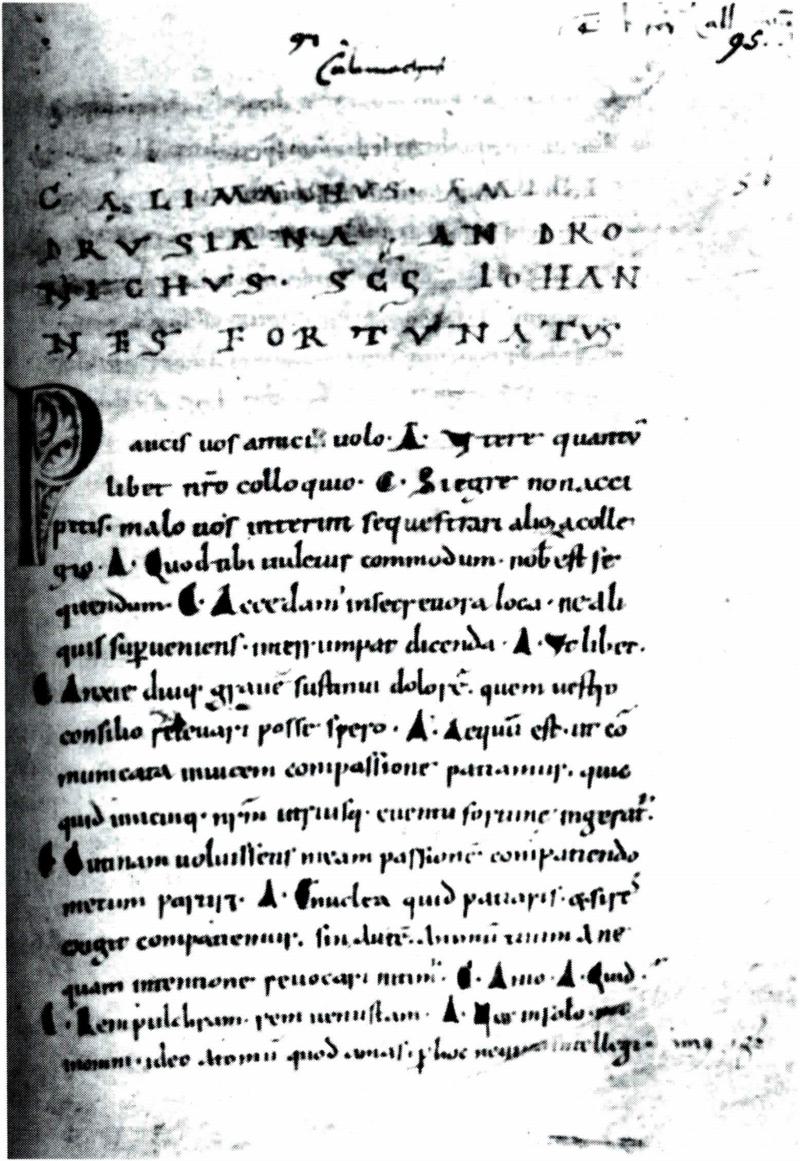 Calimachus
95.
CALIMACHVS. AMICI
DRVSIANA. ANDRO
NICHVS. SCS IOHAN
NES FORTVNATUS
Paucis uos amici uolo. A. Vtere quantū
libet nr̄o colloquio. C. Si egre non acci
pitis. malo uos interim sequestrari alioꝝ colle
gio. A. Quod tibi uidetur commodum. nob̄ est se
quendum. C. Accedam' in secretiora loca. ne ali
quis sup̱ueniens. interrumpat dicenda. A. Vt libet.
C Anxie diuq; grauē sustinui dolorē. quem uestro
consilio releuari posse spero. A. Aequū est. ut cō
municata inuicem compassione patiamur. quic
quid unicuiq; nr̄m utriusq; euentu fortune ingerat'.
C Vtinam uoluissetis meam passionē compatiendo
mecum partiri. A. Enuclea quid patiaris. & si res
exigit compatiemur. sin autē. animū tuum a ne
quam intentione reuocari nitim'. C. Amo. A. Quid.
C. Rem pulchram. rem uenustam. A. Nec in solo. nec
in omni. ideo atomū quod amas. p̱ hoc nequit intellegi